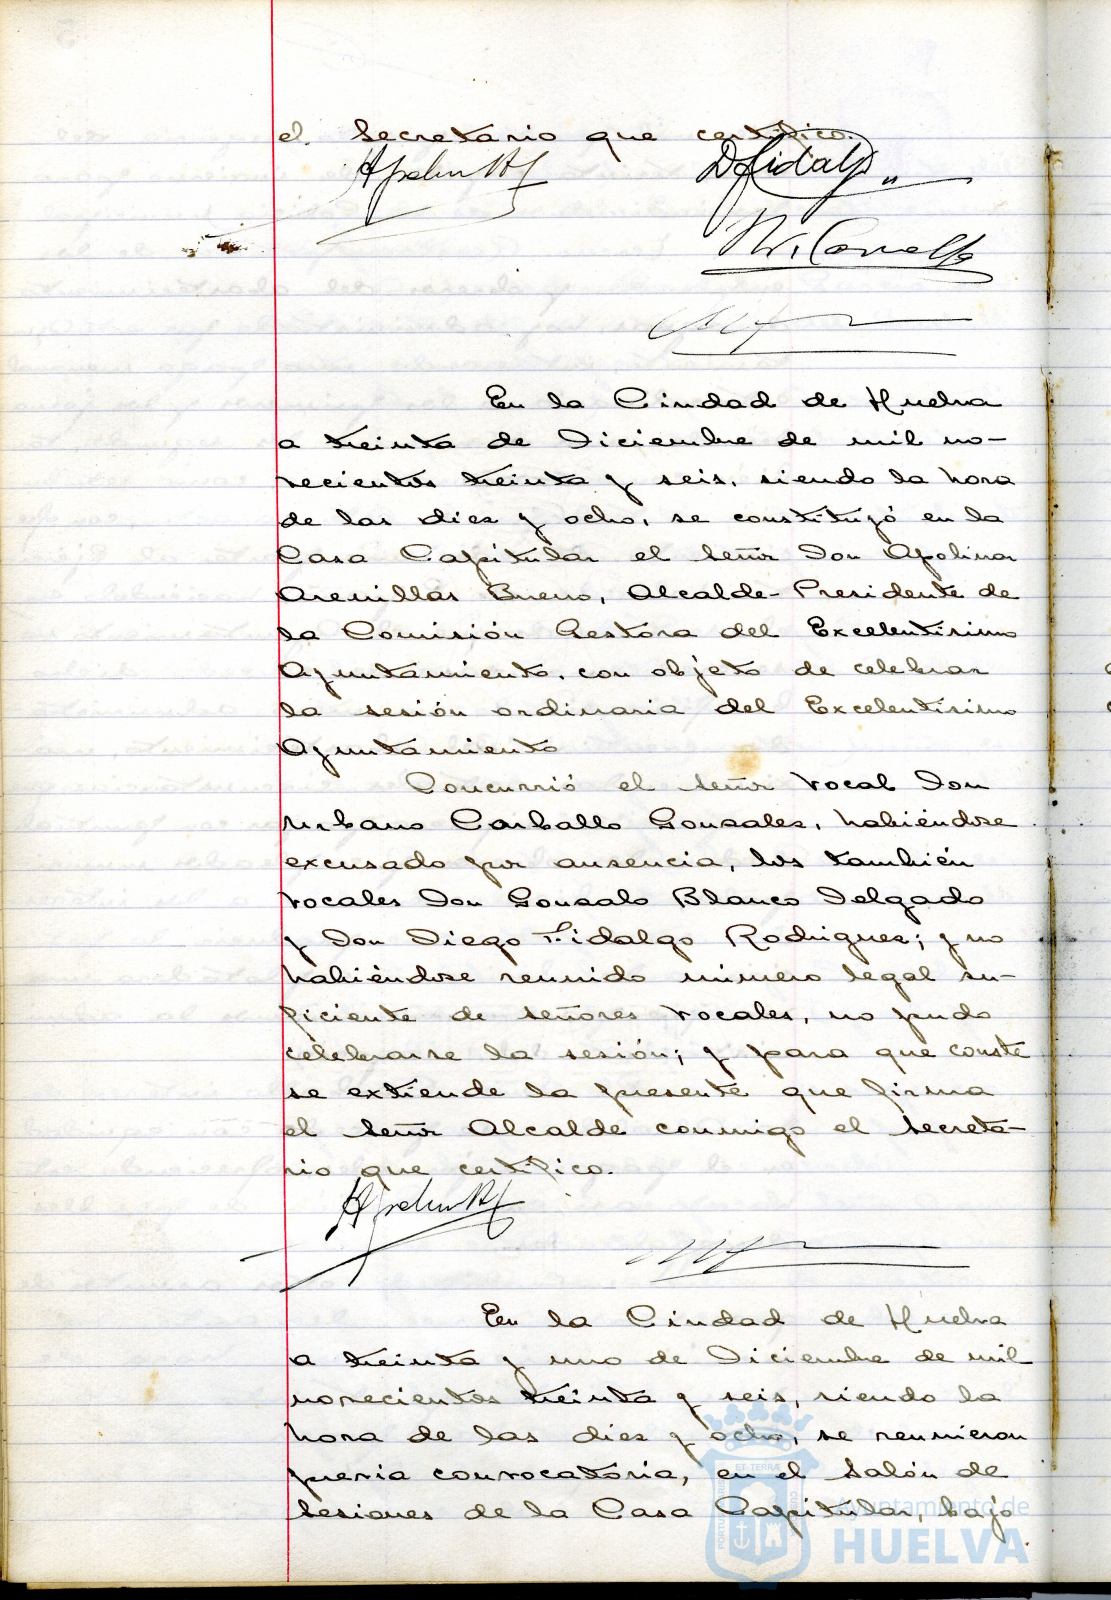 el Secretario que certifico.
D. Fidalgo
Ur. Carballo
En la Ciudad de Huelva
a treinta de Diciembre de mil no-
vecientos treinta y seis, siendo la hora
de las diez y ocho, se constituyó en la
Casa Capitular el Señor Don Apolinar
Arenillas Bueno, Alcalde-Presidente de
la Comisión Gestora del Excelentísimo
Ayuntamiento, con objeto de celebrar
la sesión ordinaria del Excelentísimo
Ayuntamiento
Concurrió el Señor Vocal Don
Urbano Carballo Gonzales, habiéndose
excusado por ausencia, los también
vocales Don Gonzalo Blanco Delgado
y Don Diego Fidalgo Rodrigues; y no
habiéndose reunido número legal su-
ficiente de señores vocales, no pudo
celebrarse la sesión; y para que conste
se extiende la presente que firma
el Señor Alcalde conmigo el Secreta-
rio que certifico.
En la Ciudad de Huelva
a treinta y uno de Diciembre de mil
novecientos treinta y seis, siendo la
hora de las diez y ocho, se reunieron
previa convocatoria, en el Salón de
Sesiones de la Casa Capitular, bajo
Ayuntamiento de
HUELVA